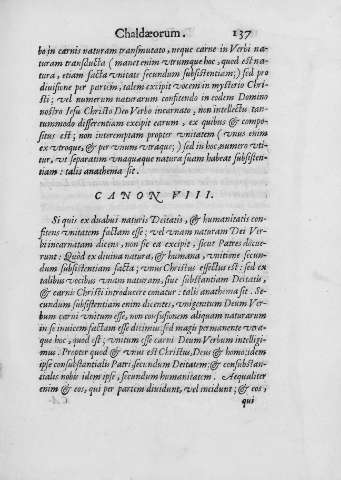 Chaldæorum. 137
bo in carnis naturam transmutato, neque carne in Verbi na-
turam transducta ( manet enim vtrumque hoc, quod est na-
tura, etiam facta vnitate secundum subsistentiam;) sed pro
diuisione per partem, talem excipit vocem in mysterio Chri-
sti; vel numerum naturarum confitendo in eodem Domino
nostro Iesu Christo Deo Verbo incarnato, non intellectu tan-
tummodo differentiam excipit earum, ex quibus & compo-
situs est; non interemptam propter vnitatem ( vnus enim
ex vtroque, & per vnum vtraque;) sed in hoc numero vti-
tur, vt separatim vnaquaque natura suam habeat subsisten-
tiam: talis anathema sit.
CANON VIII.
Si quis ex duabus naturis Deitatis, & humanitatis con-
fitens vnitatem factam esse; vel vnam naturam Dei Ver-
bi incarnatam dicens, non sic ea excipit, sicut Patres docue-
runt: Quòd ex diuina natura, & humana, vnitione secun-
dum subsistentiam facta; vnus Christus effectus est: sed ex
talibus vocibus vnam naturam, siue substantiam Deitatis,
& carnis Christi introducere conatur: talis anathema sit. Se-
cundum subsistentiam enim dicentes, vnigenitum Deum Ver-
bum carni vnitum esse, non confusionem aliquam naturarum
in se inuicem factam esse dicimus; sed magis permanente vtra-
que hoc, quod est; vnitum esse carni Deum Verbum intelligi-
mus: Propter quod & vnus est Christus, Deus & homo: idem
ipse consubstantialis Patri secundum Deitatem; & consubstan-
tialis nobis idem ipse, secundum humanitatem. Aequaliter
enim & eos, qui per partem diuidunt, vel incidunt; & eos,
qui